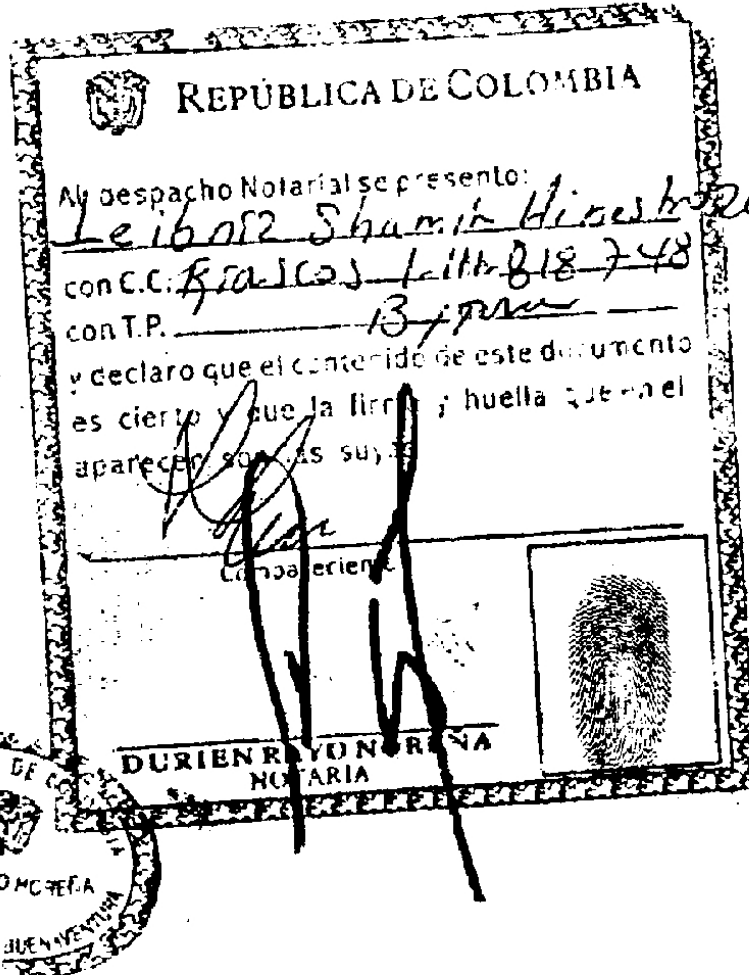 REPÚBLICA DE COLOMBIA
Al despacho Notarial se presento:
Leibniz Shamir Hinestroza
con C.C. Riascos 1.111. 818 748
con T.P. B/tura
y declaro que el contenido de este documento
es cierto y que la firma y huella que en el
aparecen son las suyas
Compareciente
DURIEN RAYO NOREÑA
NOTARIA
DE
NOREÑA
BUENAVENTURA